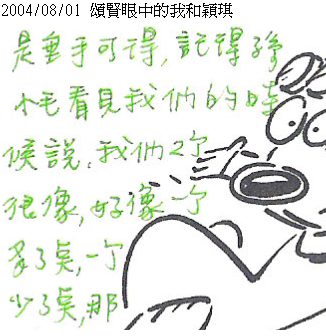 2004/08/01 頌賢眼中的我和穎琪
是垂手可得,記得
小毛看見我們的時
候說,我們2个
很像,好像一个
多了點,一个
少了點,那